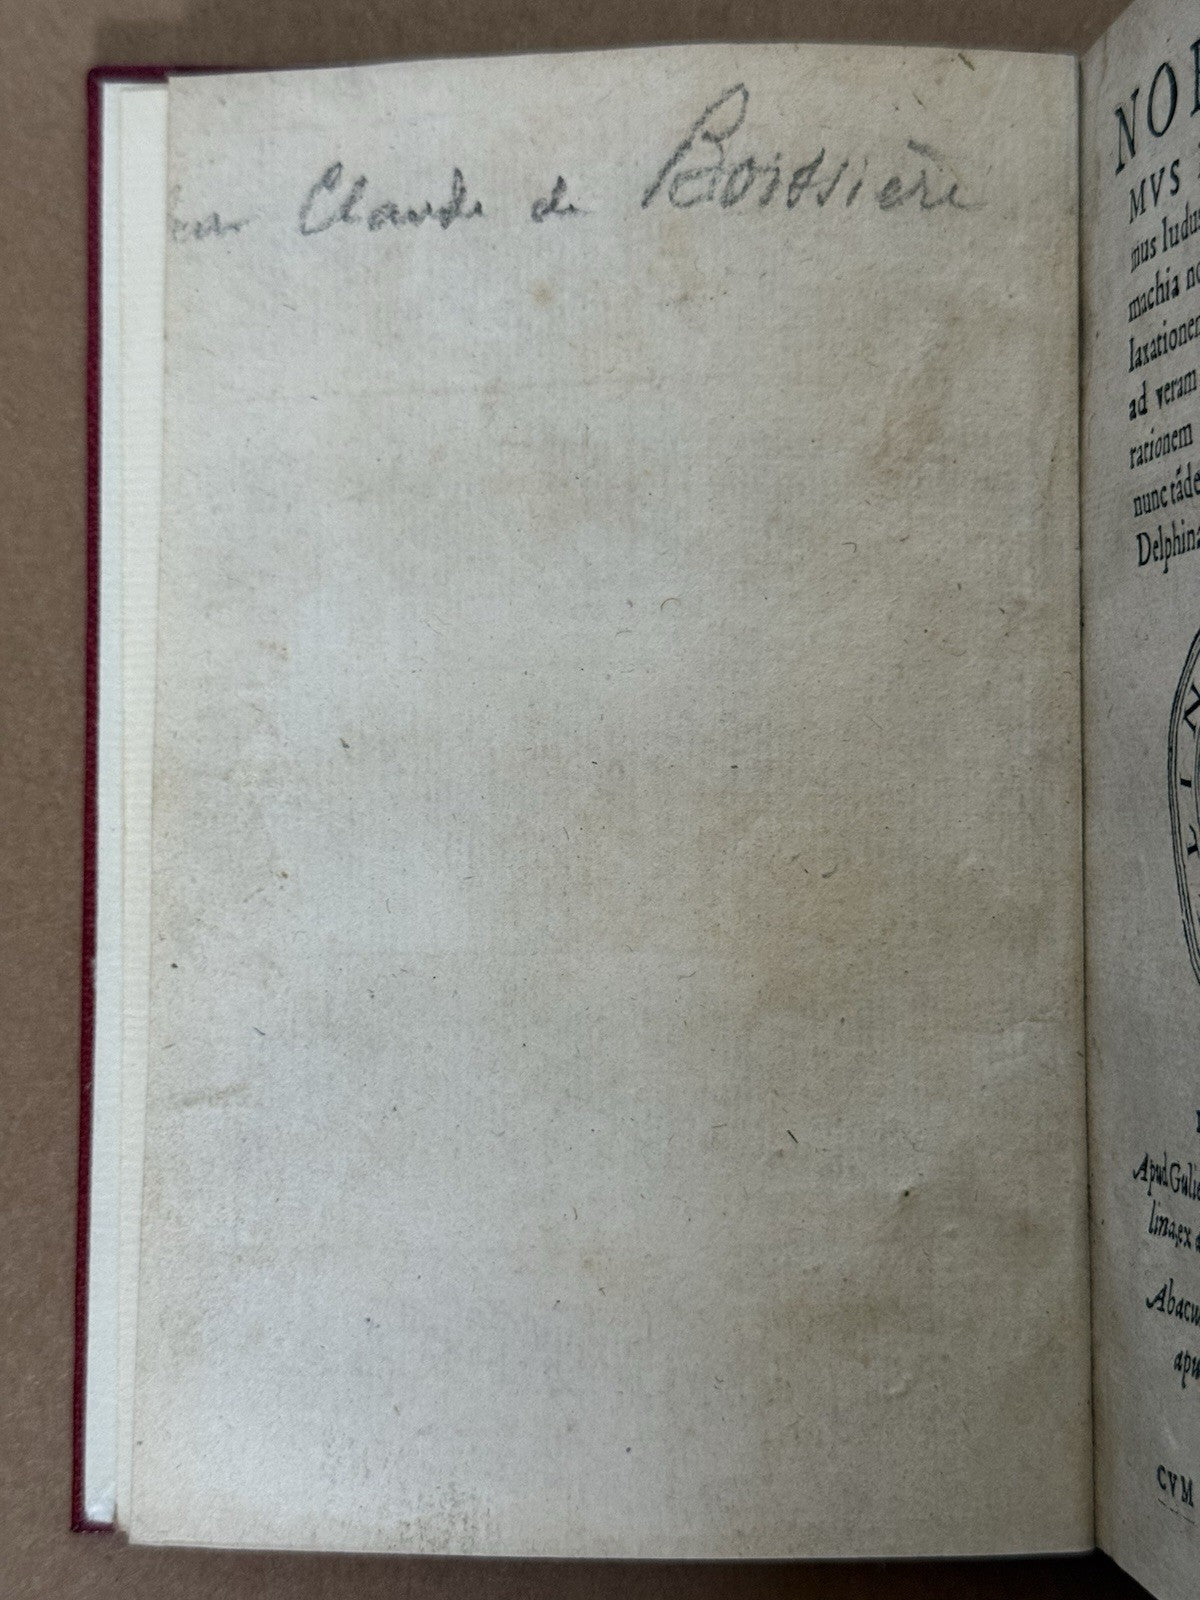 par Claude de Boissière
NO
MVS
mus ludus
machia no
laxationem
ad veram
rationem
nunc tāde
Delphina
Apud Gulie
lina, ex a
Abacu
apu
CVM